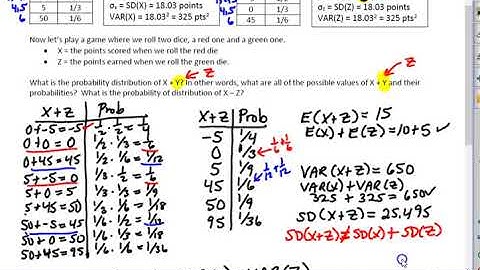 4,5,6
5 1/3
50 1/6
σₓ = SD(X) = 18.03 points
VAR(X) = 18.03² = 325 pts²
0 1/3
45 1/6
σ = SD(Z) = 18.03 points
VAR(Z) = 18.03² = 325 pts²
Now let's play a game where we roll two dice, a red one and a green one.
• X = the points scored when we roll the red die
• Z = the points earned when we roll the green die.
Z
Z
What is the probability distribution of X + Y? In other words, what are all of the possible values of X + Y and their
probabilities? What is the probability of distribution of X – Z?
X+Z Prob
0+-5=-5 1/2 · 1/2 = 1/4
0+0=0 1/2 · 1/3 = 1/6
0+45=45 1/2 · 1/6 = 1/12
5+-5=0 1/3 · 1/2 = 1/6
5+0=5 1/3 · 1/3 = 1/9
5+45=50 1/3 · 1/6 = 1/18
50+-5=45 1/6 · 1/2 = 1/12
50+0=50 1/6 · 1/3 = 1/18
50+45=95 1/6 · 1/6 = 1/36
X+Z Prob
-5 1/4
0 1/3 ← 1/6 + 1/6
5 1/9
45 1/6 ← 1/12 + 1/12
50 1/9
95 1/36
E(X+Z) = 15
E(X)+E(Z)=10+5 ✓
VAR(X+Z) = 650
VAR(X)+VAR(Z)
325 + 325 = 650 ✓
SD(X+Z) = 25.495
SD(X+Z) ≠ SD(X) + SD(Z)